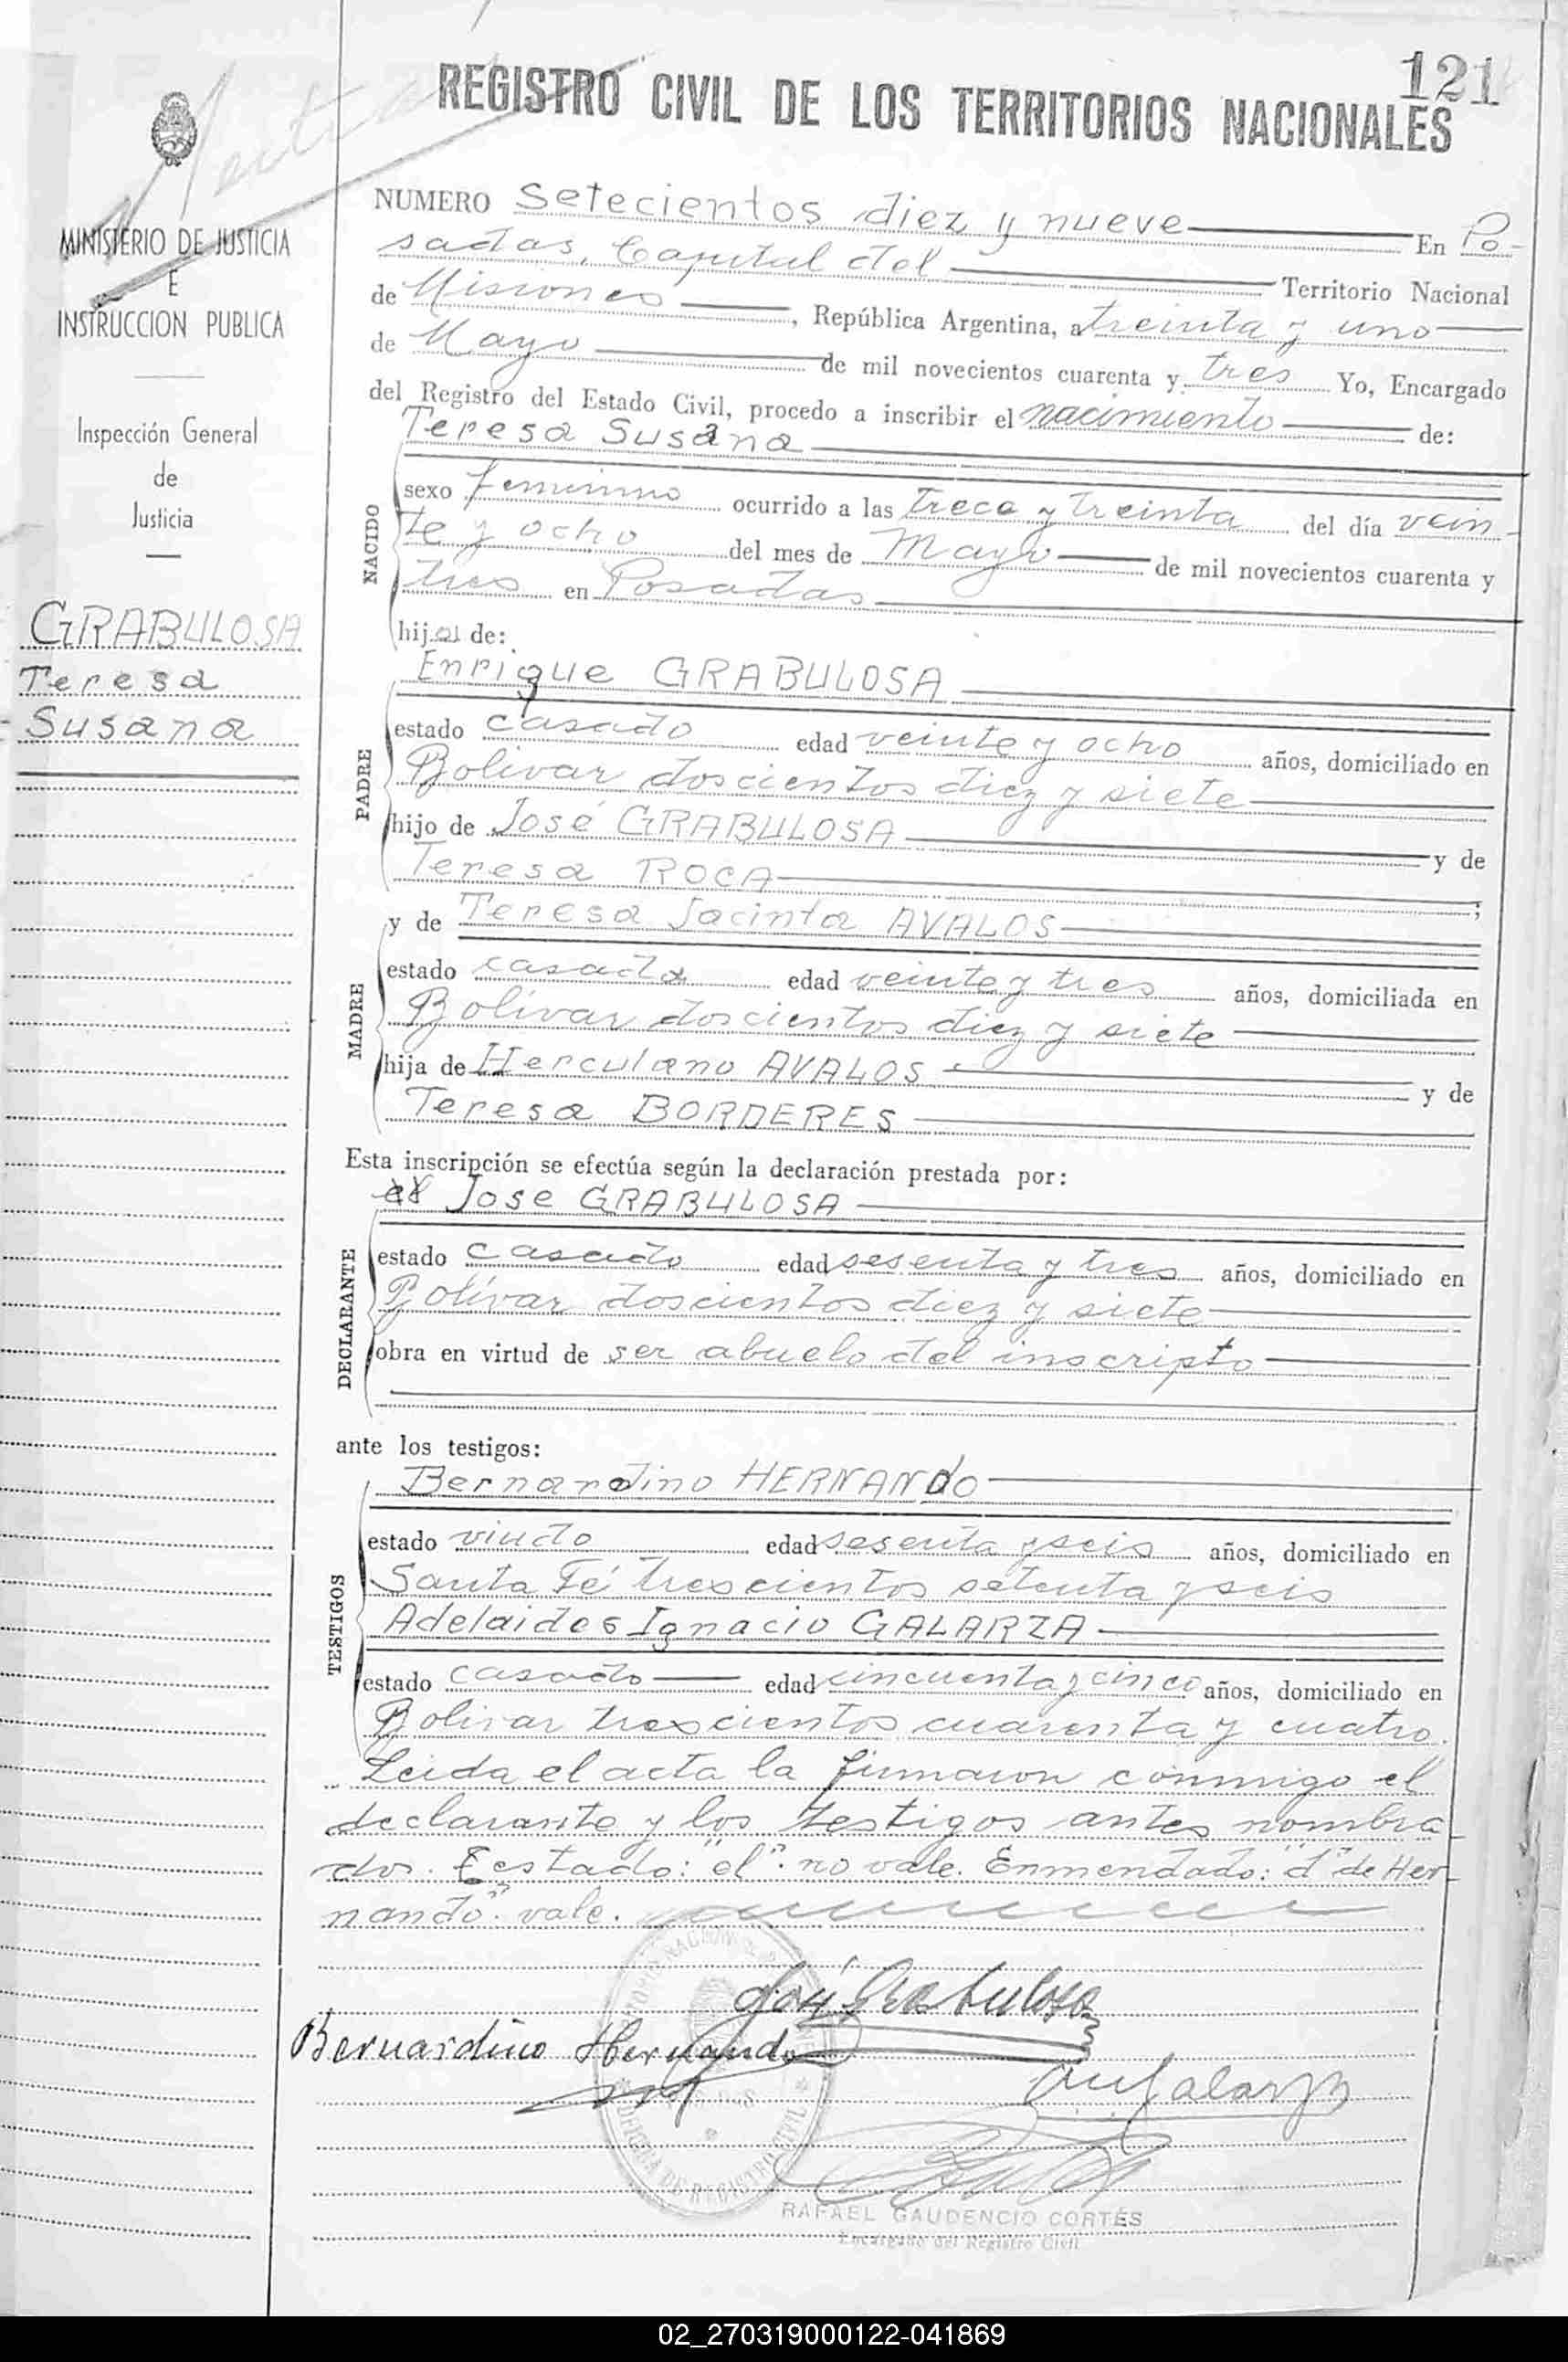 121
REGISTRO CIVIL DE LOS TERRITORIOS NACIONALES
MINISTERIO DE JUSTICIA
E
INSTRUCCION PUBLICA
Inspección General
de
Justicia
GRABULOSA
Teresa
Susana
NUMERO Setecientos diez y nueve En Po-
sadas, Capital del Territorio Nacional
de Misiones, República Argentina, a treinta y uno
de Mayo de mil novecientos cuarenta y tres Yo, Encargado
del Registro del Estado Civil, procedo a inscribir el nacimiento de:
Teresa Susana
NACIDO
sexo femenino ocurrido a las trece y treinta del día vein-
te y ocho del mes de Mayo de mil novecientos cuarenta y
tres en Posadas
hija de:
Enrique GRABULOSA
PADRE
estado casado edad veinte y ocho años, domiciliado en
Bolivar doscientos diez y siete
hijo de José GRABULOSA y de
Teresa ROCA;
y de Teresa Jacinta AVALOS
MADRE
estado casada edad veinte y tres años, domiciliada en
Bolívar doscientos diez y siete
hija de Herculano AVALOS y de
Teresa BORDERES
Esta inscripción se efectúa según la declaración prestada por:
el Jose GRABULOSA
DECLARANTE
estado casado edad sesenta y tres años, domiciliado en
Bolívar doscientos diez y siete
obra en virtud de ser abuelo del inscripto
ante los testigos:
Bernardino HERNANDO
TESTIGOS
estado viudo edad sesenta y seis años, domiciliado en
Santa Fé trescientos setenta y seis
Adelaides Ignacio GALARZA
estado casado edad cincuenta y cinco años, domiciliado en
Bolivar trescientos cuarenta y cuatro.
Leida el acta la firmaron conmigo el
declarante y los testigos antes nombra-
dos. Testado: "el": no vale. Enmendado: "d" de Her-
nando": vale.
José Grabulosa
Bernardino Hernando
Galarza
OFICINA DE REGISTRO CIVIL
RAFAEL GAUDENCIO CORTÉS
Encargado del Registro Civil
02_270319000122-041869